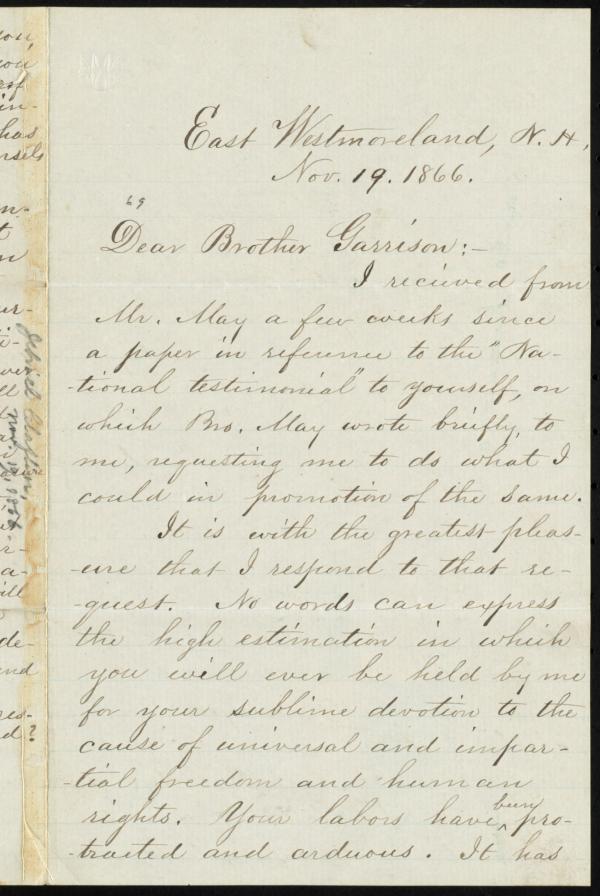 East Westmoreland, N. H.,
Nov. 19. 1866.
69
Dear Brother Garrison:—
I recieved from
Mr. May a few weeks since
a paper in reference to the "Na-
-tional testimonial" to yourself, on
which Bro. May wrote briefly, to
me, requesting me to do what I
could in promotion of the same.
It is with the greatest pleas-
-ure that I respond to that re-
-quest. No words can express
the high estimation in which
you will ever be held by me
for your sublime devotion to the
cause of universal and impar-
-tial freedom and human
rights. Your labors have been pro-
-tracted and arduous. It has